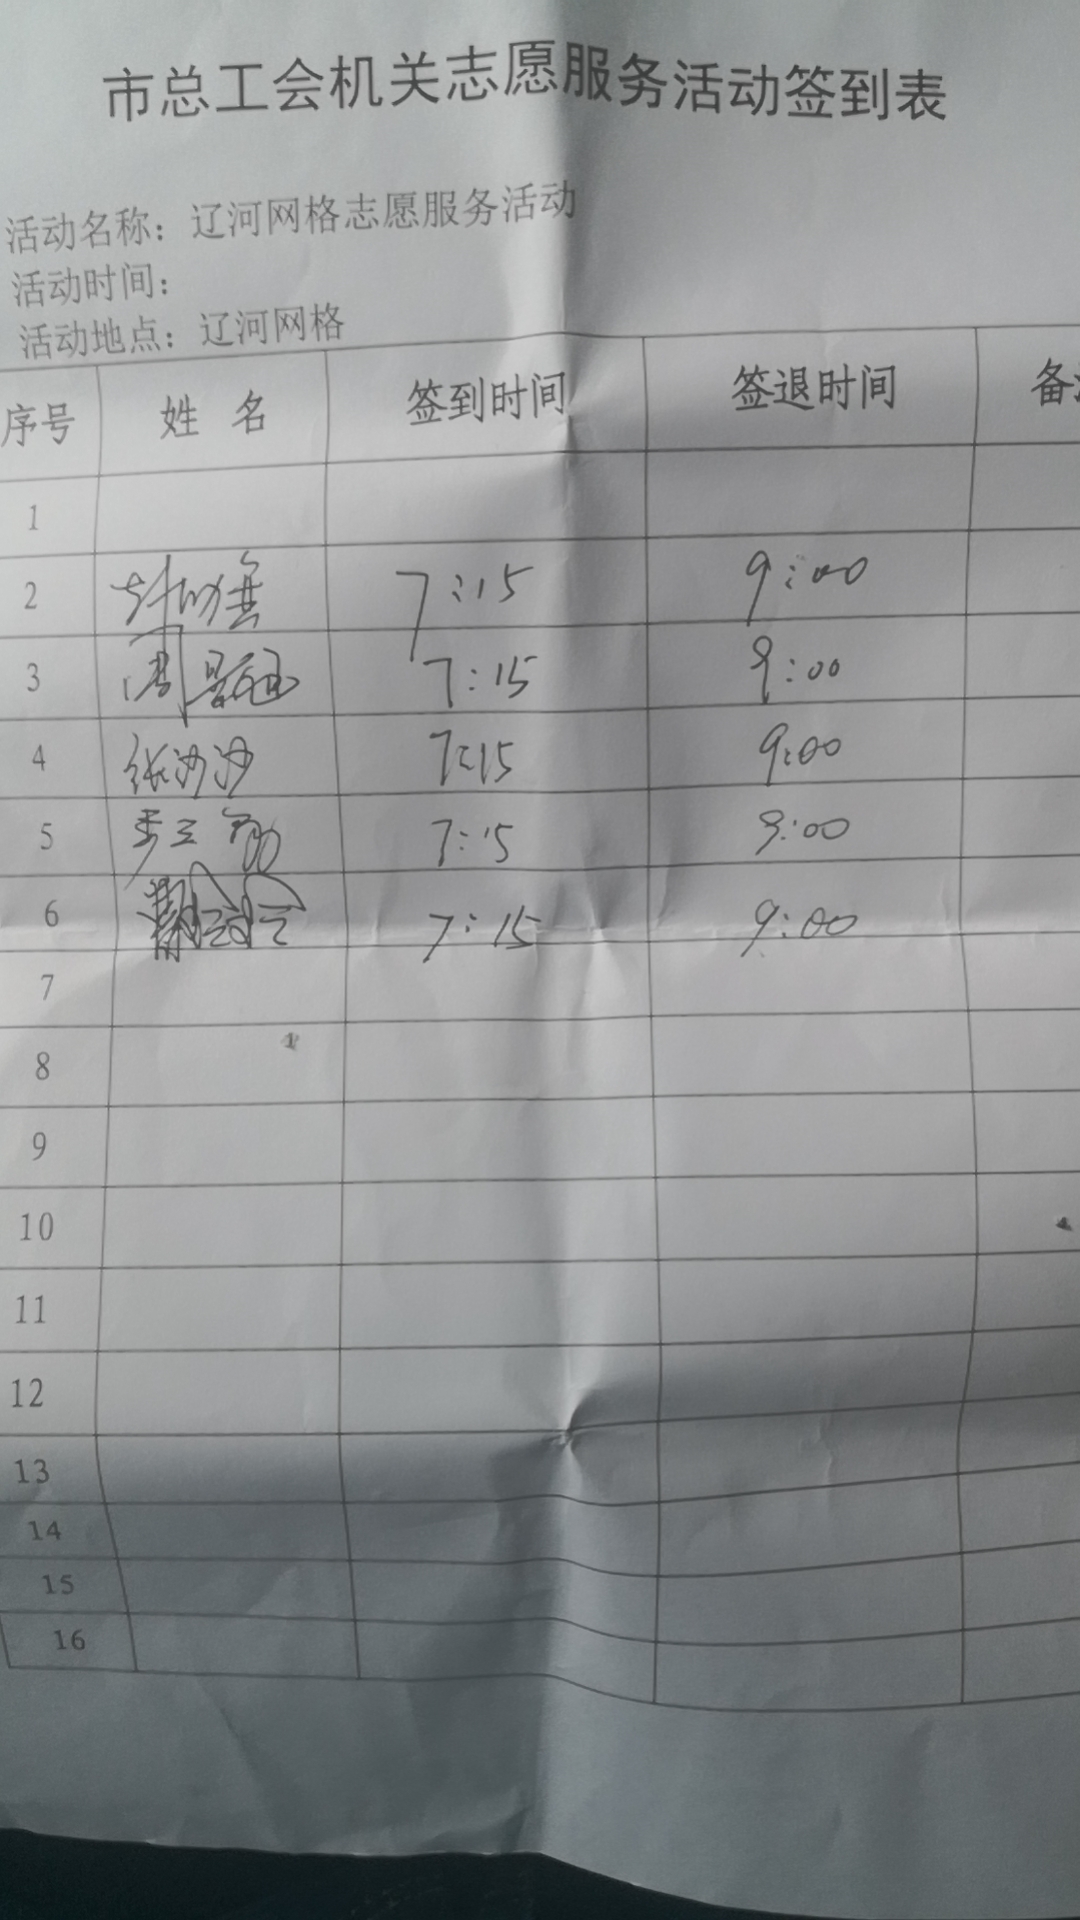 市总工会机关志愿服务活动签到表
活动名称：辽河网格志愿服务活动
活动时间：
活动地点：辽河网格
序号 姓 名 签到时间 签退时间 备
1
2 7:15 9:00
3 周 7:15 9:00
4 张沙沙 7:15 9:00
5 7:15 9:00
6 7:15 9:00
7
8
9
10
11
12
13
14
15
16